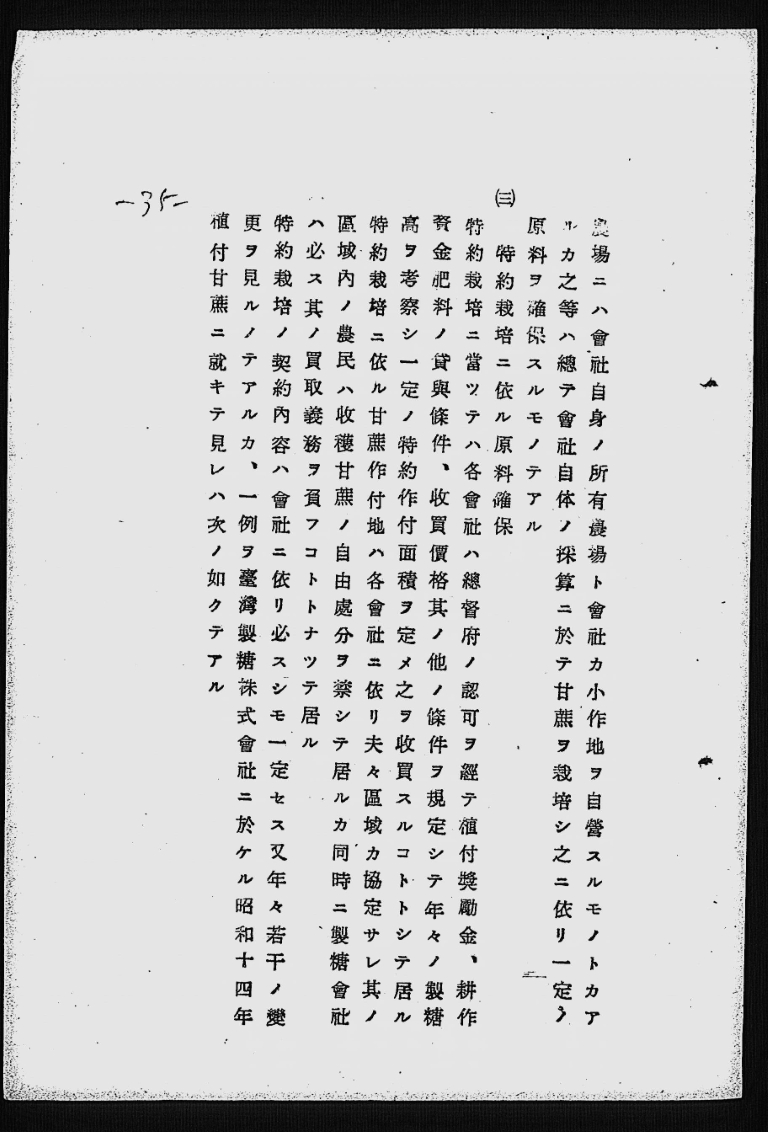 農場ニハ會社自身ノ所有農場ト會社カ小作地ヲ自營スルモノトカア
ルカ之等ハ總テ會社自体ノ採算ニ於テ甘蔗ヲ栽培シ之ニ依リ一定ノ
原料ヲ確保スルモノテアル
㈢　特約栽培ニ依ル原料確保
特約栽培ニ當ツテハ各會社ハ總督府ノ認可ヲ經テ植付獎勵金、耕作
資金肥料ノ貸與條件、收買價格其ノ他ノ條件ヲ規定シテ年々ノ製糖
高ヲ考察シ一定ノ特約作付面積ヲ定メ之ヲ收買スルコトトシテ居ル
特約栽培ニ依ル甘蔗作付地ハ各會社ニ依リ夫々區域カ協定サレ其ノ
區域內ノ農民ハ收穫甘蔗ノ自由處分ヲ禁シテ居ルカ同時ニ製糖會社
ハ必ス其ノ買取義務ヲ負フコトトナツテ居ル
特約栽培ノ契約內容ハ會社ニ依リ必スシモ一定セス又年々若干ノ變
更ヲ見ルノテアルカ、一例ヲ臺灣製糖株式會社ニ於ケル昭和十四年
植付甘蔗ニ就キテ見レハ次ノ如クテアル
-35-